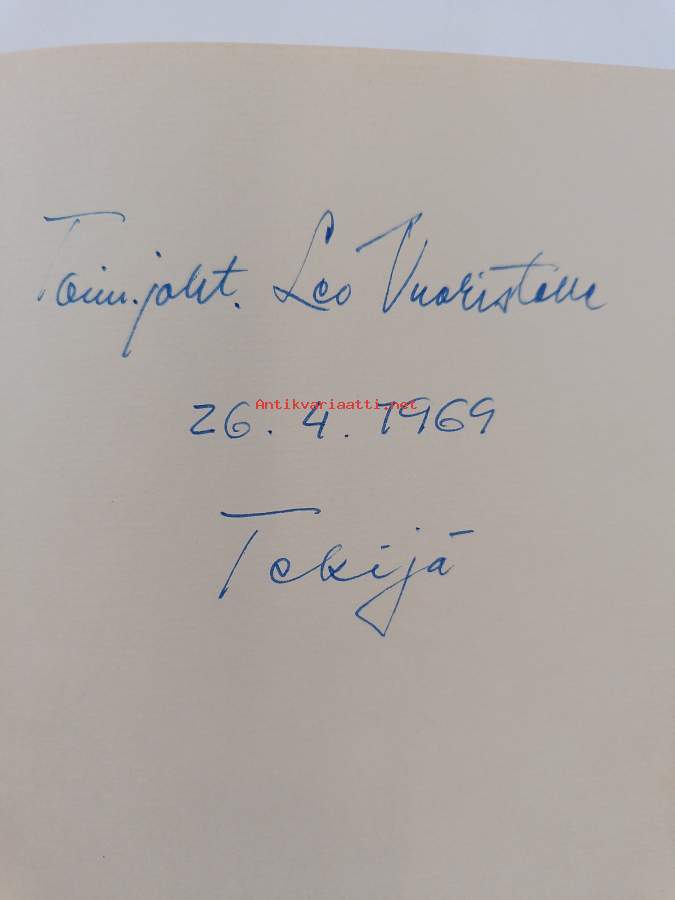 Toim.joht. Leo Vuoristolle
Antikvariaatti.net
26. 4. 1969
Tekijä